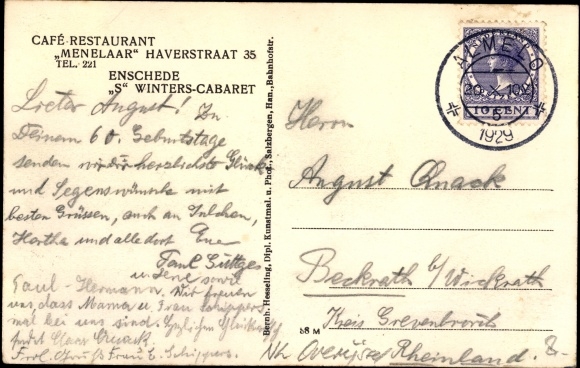 CAFÉ-RESTAURANT
„MENELAAR" HAVERSTRAAT 35
TEL. 221
ENSCHEDE
„S" WINTERS-CABARET
Lieber August! Zu
Deinem 60. Geburtstage
senden wir die herzlichste Glück
und Segenswünsche mit
besten Grüssen, auch an Julchen,
Hertha und alle dort Eure
Paul Güttges
und Leni sowie
Paul-Hermann. Wir freuen
uns, dass Mama u. Frau Schippers
mal bei uns sind. Herzlichen Glückwunsch
Claus Quack.
Frdl. Gruß Frau E. Schippers.
Bernh. Hesseling, Dipl. Kunstmal. u. Phot., Salzbergen, Han., Bahnhofstr.
ALMELO
20 X 10
5
1929
10 CENT
Herrn
August Quack
Beckrath b/Wickrath
Kreis Grevenbroich
Rheinland.
58 M